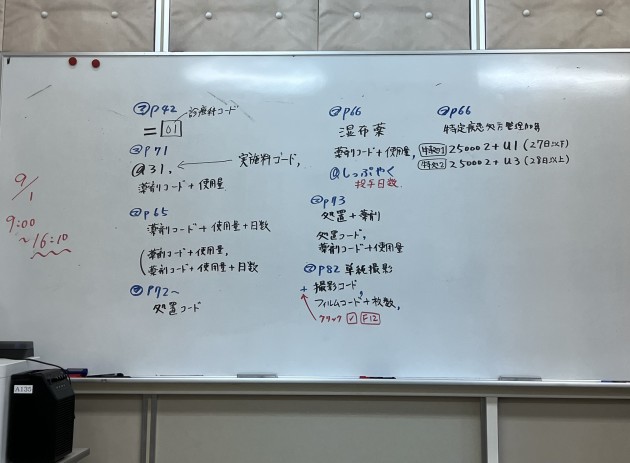 9/1
9:00
~16:10
②p42 診療科コード
= 01
②p71
@31, 実施料コード,
薬剤コード + 使用量
②p65
薬剤コード + 使用量 + 日数
薬剤コード + 使用量,
薬剤コード + 使用量 + 日数
②p72~
処置コード
②p66
湿布薬
薬剤コード + 使用量,
@しっぷやく
投与日数
②p73
処置 + 薬剤
処置コード,
薬剤コード + 使用量
②p82 単純撮影
+ 撮影コード,
フィルムコード + 枚数,
クリック ✓ F12
②p66
特定疾患処方管理加算
特処1 250002 + U1 (27日以下)
特処2 250002 + U3 (28日以上)
A135